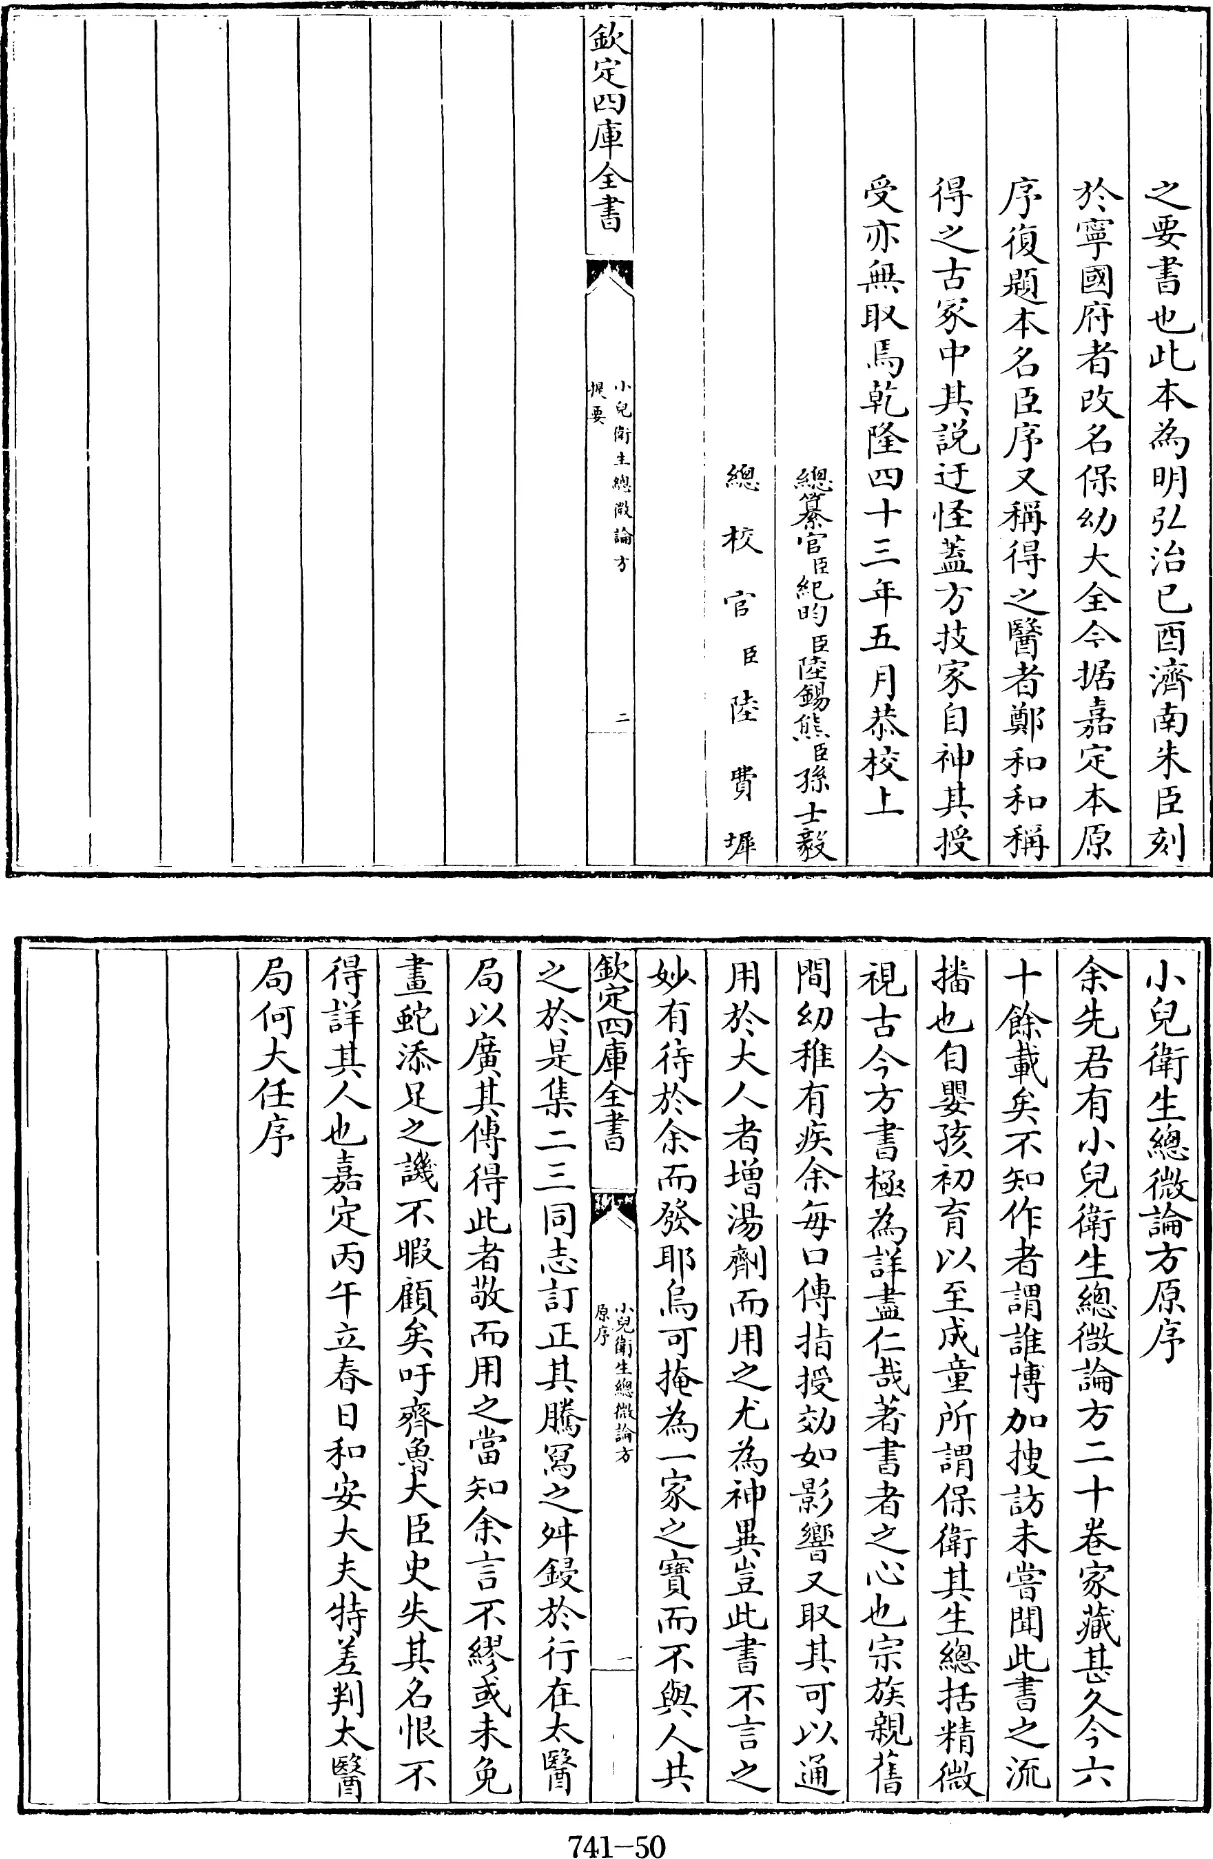 之要書也此本為明弘治己酉濟南朱臣刻
於寧國府者改名保幼大全今据嘉定本原
序復題本名臣序又稱得之醫者鄭和和稱
得之古冢中其説迂怪蓋方技家自神其授
受亦無取焉乾隆四十三年五月恭校上
總纂官臣紀昀臣陸錫熊臣孫士毅
總校官臣陸費墀
欽定四庫全書
小兒衛生總微論方
提要
二
小兒衛生總微論方原序
余先君有小兒衛生總微論方二十卷家藏甚久今六
十餘載矣不知作者謂誰博加搜訪未嘗聞此書之流
播也自嬰孩初育以至成童所謂保衛其生總括精微
視古今方書極為詳盡仁哉著書者之心也宗族親舊
間幼稚有疾余每口傳指授効如影響又取其可以通
用於大人者增湯劑而用之尤為神異豈此書不言之
妙有待於余而發耶烏可掩為一家之寶而不與人共
欽定四庫全書
小兒衛生總微論方
原序
一
之於是集二三同志訂正其騰寫之舛鋟於行在太醫
局以廣其傳得此者敬而用之當知余言不繆或未免
畫蛇添足之譏不暇顧矣吁齊魯大臣史失其名恨不
得詳其人也嘉定丙午立春日和安大夫特差判太醫
局何大任序
741-50